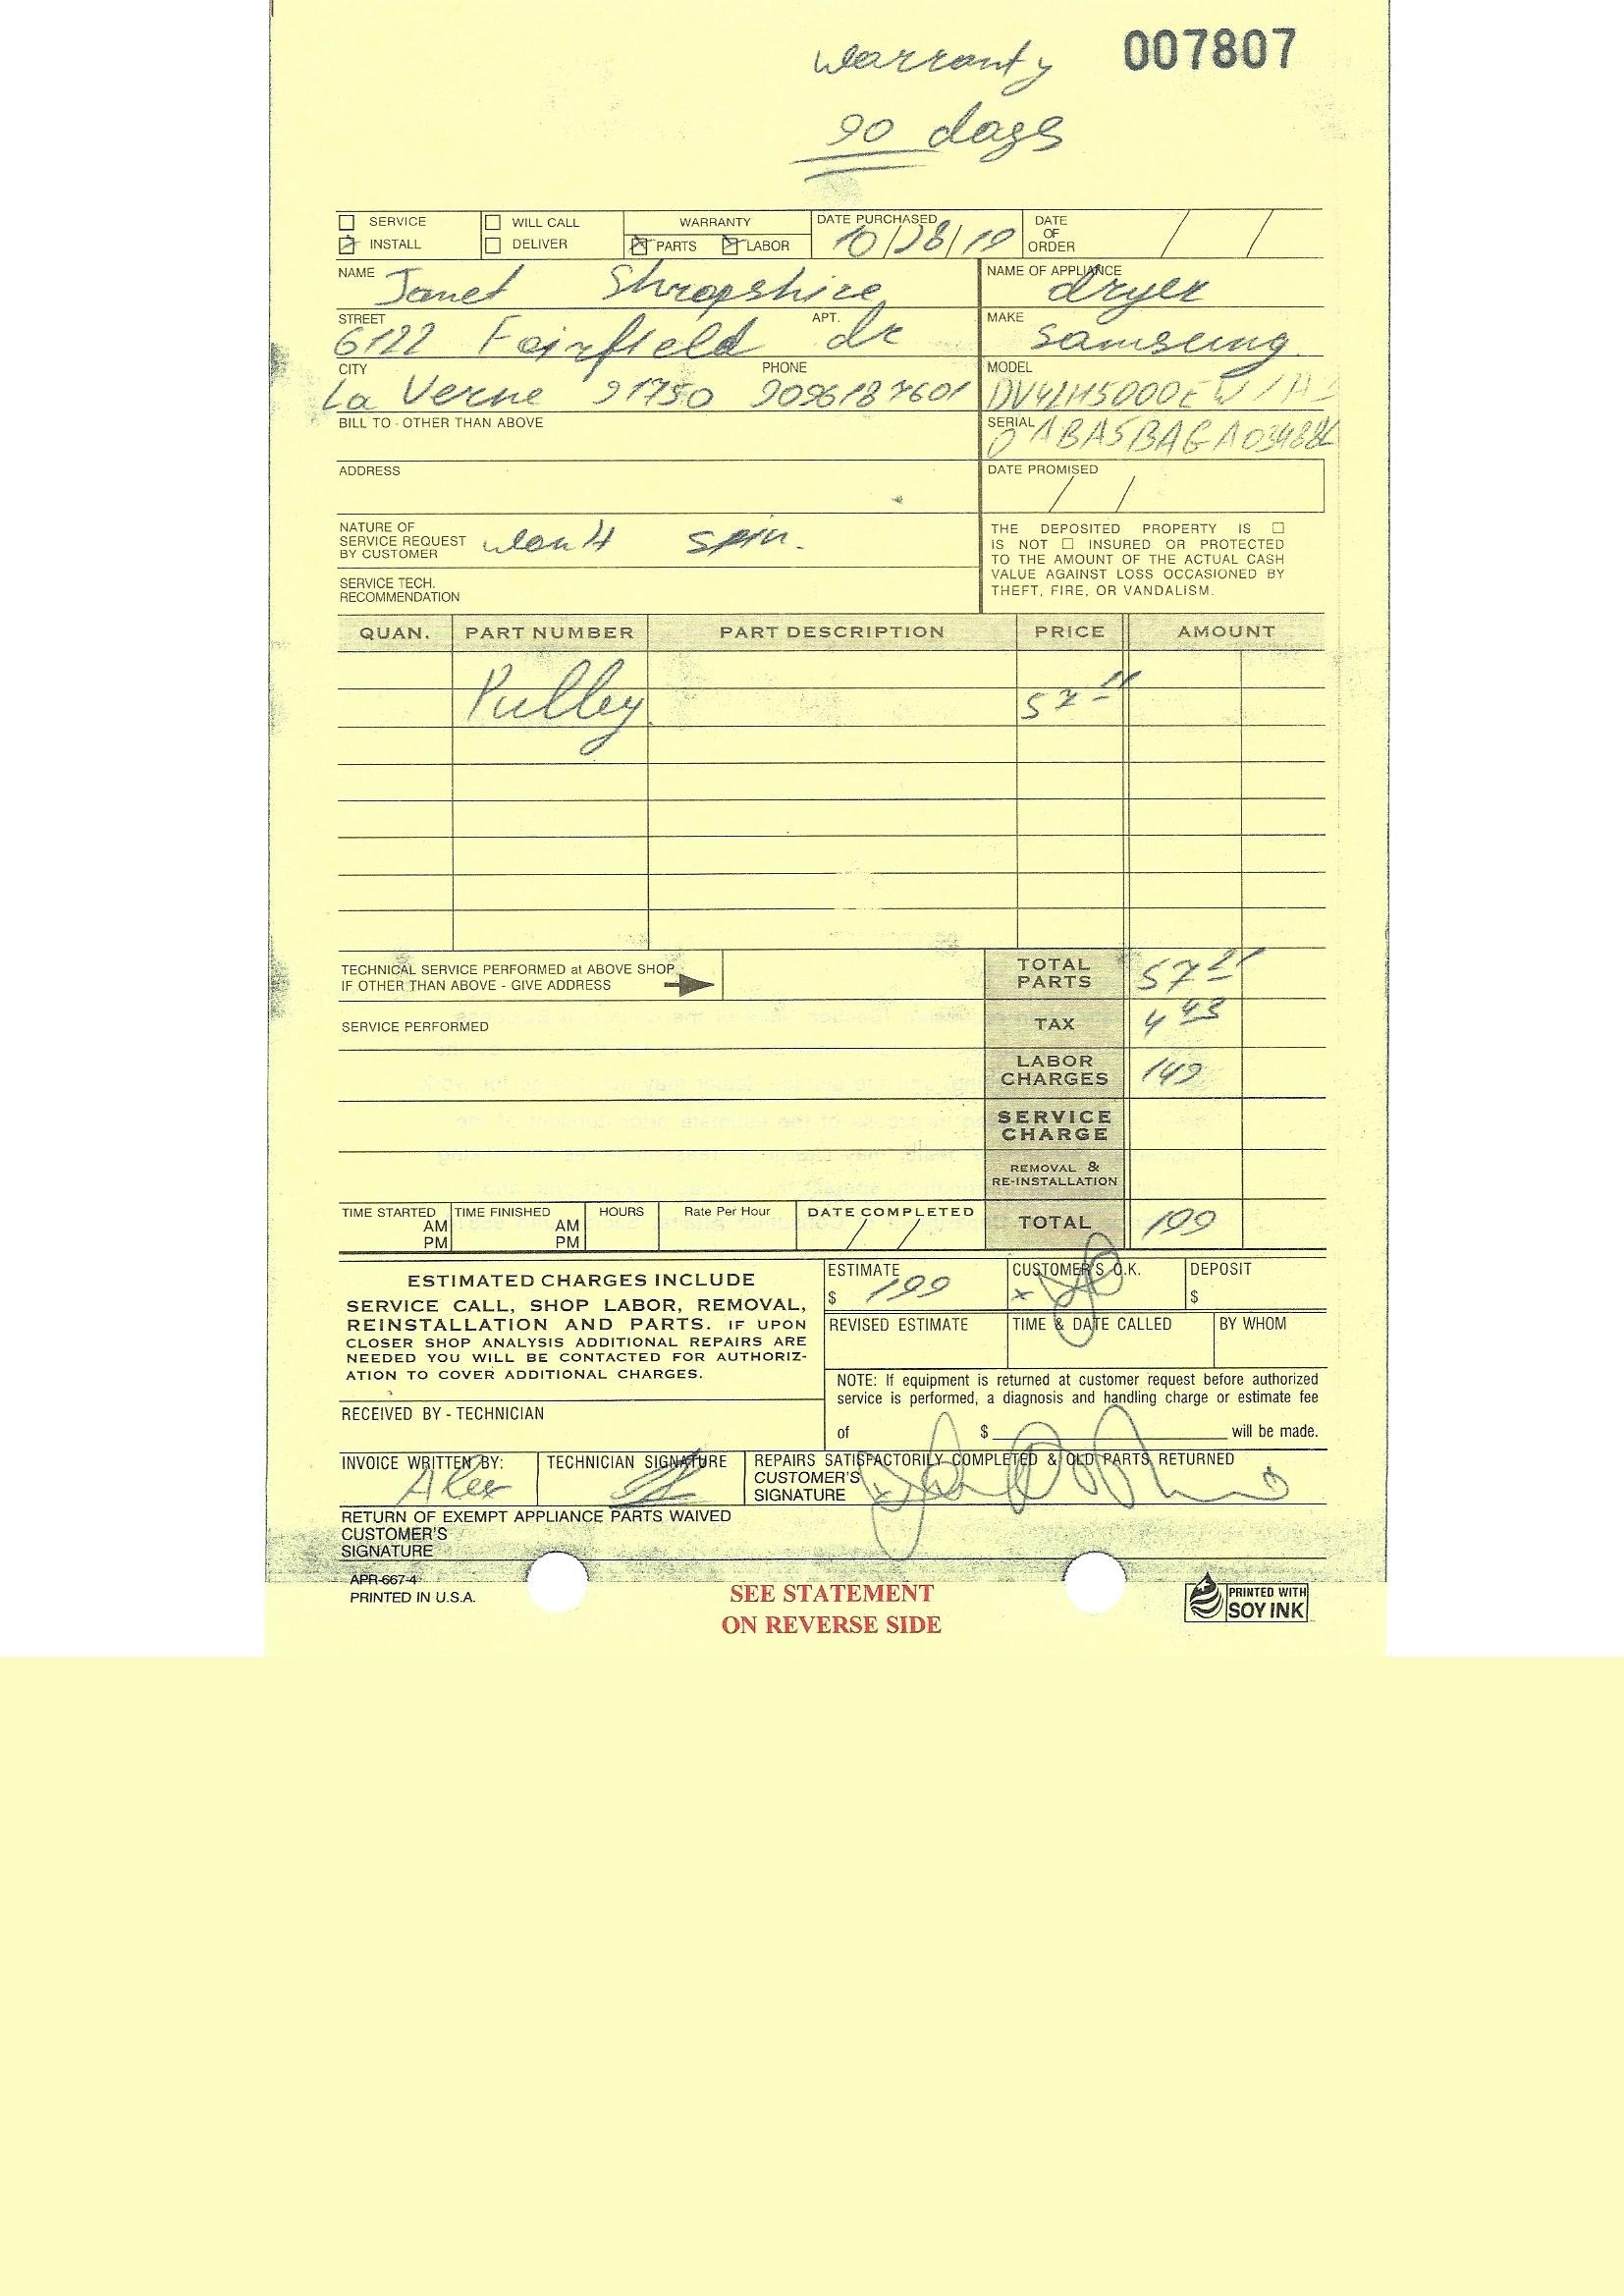 warranty 007807
90 days
SERVICE WILL CALL WARRANTY DATE PURCHASED 10/28/19 DATE OF ORDER / /
INSTALL DELIVER PARTS LABOR
NAME Janet Shropshire NAME OF APPLIANCE dryer
STREET 6122 Fairfield APT. dr MAKE Samsung
CITY La Verne 91750 PHONE 9096187601 MODEL
BILL TO - OTHER THAN ABOVE SERIAL
ADDRESS DATE PROMISED / /
NATURE OF
SERVICE REQUEST
BY CUSTOMER spin.
SERVICE TECH.
RECOMMENDATION
THE DEPOSITED PROPERTY IS ☐
IS NOT ☐ INSURED OR PROTECTED
TO THE AMOUNT OF THE ACTUAL CASH
VALUE AGAINST LOSS OCCASIONED BY
THEFT, FIRE, OR VANDALISM.
QUAN. PART NUMBER PART DESCRIPTION PRICE AMOUNT
Pulley
TECHNICAL SERVICE PERFORMED at ABOVE SHOP
IF OTHER THAN ABOVE - GIVE ADDRESS
TOTAL
PARTS
SERVICE PERFORMED TAX 4 43
LABOR
CHARGES 149
SERVICE
CHARGE
REMOVAL &
RE-INSTALLATION
TIME STARTED AM PM TIME FINISHED AM PM HOURS Rate Per Hour DATE COMPLETED / / TOTAL 199
ESTIMATED CHARGES INCLUDE
SERVICE CALL, SHOP LABOR, REMOVAL,
REINSTALLATION AND PARTS. IF UPON
CLOSER SHOP ANALYSIS ADDITIONAL REPAIRS ARE
NEEDED YOU WILL BE CONTACTED FOR AUTHORIZ-
ATION TO COVER ADDITIONAL CHARGES.
ESTIMATE $ 199 CUSTOMER'S O.K. x DEPOSIT $
REVISED ESTIMATE TIME & DATE CALLED BY WHOM
NOTE: If equipment is returned at customer request before authorized
service is performed, a diagnosis and handling charge or estimate fee
of $ will be made.
RECEIVED BY - TECHNICIAN
INVOICE WRITTEN BY: Alex TECHNICIAN SIGNATURE REPAIRS SATISFACTORILY COMPLETED & OLD PARTS RETURNED
CUSTOMER'S
SIGNATURE x
RETURN OF EXEMPT APPLIANCE PARTS WAIVED
CUSTOMER'S
SIGNATURE
APR-667-4
PRINTED IN U.S.A.
SEE STATEMENT
ON REVERSE SIDE
PRINTED WITH
SOY INK